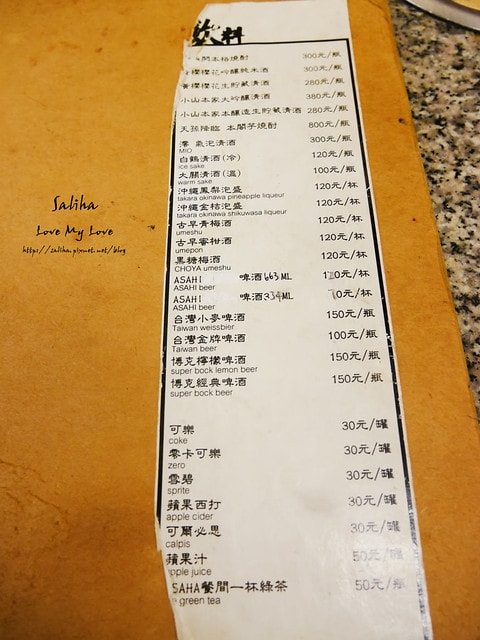 飲料
本格燒酎 300元/瓶
櫻櫻花吟釀純米酒 300元/瓶
黃櫻櫻花生貯藏清酒 280元/瓶
小山本家大吟釀清酒 380元/瓶
小山本家本釀造生貯藏清酒 280元/瓶
天孫降臨 本閣芋燒酎 800元/瓶
澪 氣泡清酒 300元/瓶
MIO
白鶴清酒(冷) 120元/瓶
ice sake
大關清酒(溫) 100元/瓶
warm sake
沖繩鳳梨泡盛 120元/杯
takara okinawa pineapple liqueur
沖繩金桔泡盛 120元/杯
takara okinawa shikuwasa liqueur
古早青梅酒 120元/杯
umeshu
古早蜜柑酒 120元/杯
umepon
黑糖梅酒 120元/杯
CHOYA umeshu
ASAHI 啤酒663ML 120元/杯
ASAHI beer
ASAHI 啤酒334ML 70元/杯
ASAHI beer
台灣小麥啤酒 150元/瓶
Taiwan weissbier
台灣金牌啤酒 100元/瓶
Taiwan beer
博克檸檬啤酒 150元/瓶
super bock lemon beer
博克經典啤酒 150元/瓶
super bock beer
可樂 30元/罐
coke
零卡可樂 30元/罐
zero
雪碧 30元/罐
sprite
蘋果西打 30元/罐
apple cider
可爾必思 30元/罐
calpis
蘋果汁 50元/罐
apple juice
SAHA餐間一杯綠茶 50元/瓶
green tea
Saliha
Love My Love
https://saliha.pixnet.net/blog